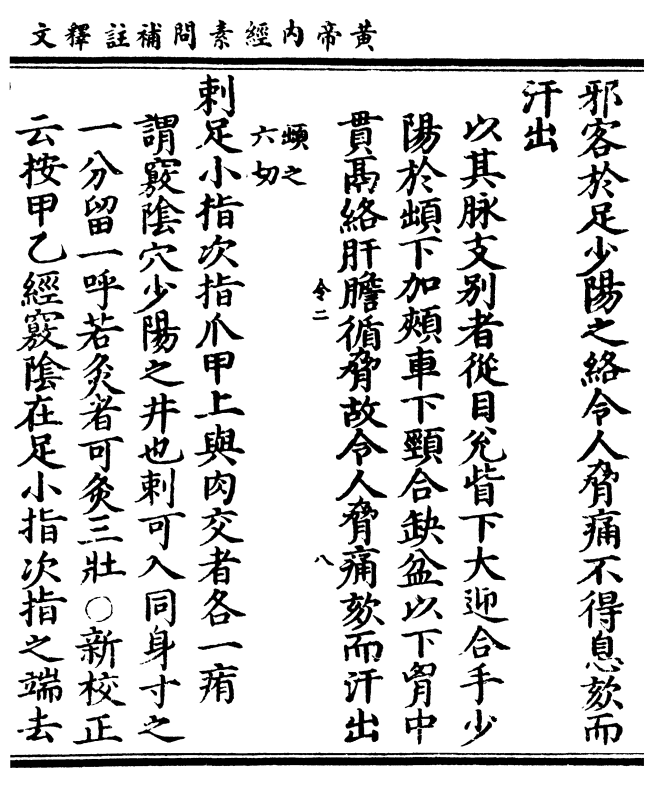 黃帝內經素問補註釋文
邪客於足少陽之絡令人脅痛不得息欬而
汗出
以其脉支別者從目兊眥下大迎合手少
陽於䪼下加頰車下頸合缺盆以下胷中
貫鬲絡肝膽循脅故令人脅痛欬而汗出
䪼之
六切
刺足小指次指爪甲上與肉交者各一痏
謂竅陰穴少陽之井也刺可入同身寸之
一分留一呼若灸者可灸三壯○新校正
云按甲乙經竅陰在足小指次指之端去
令二
八